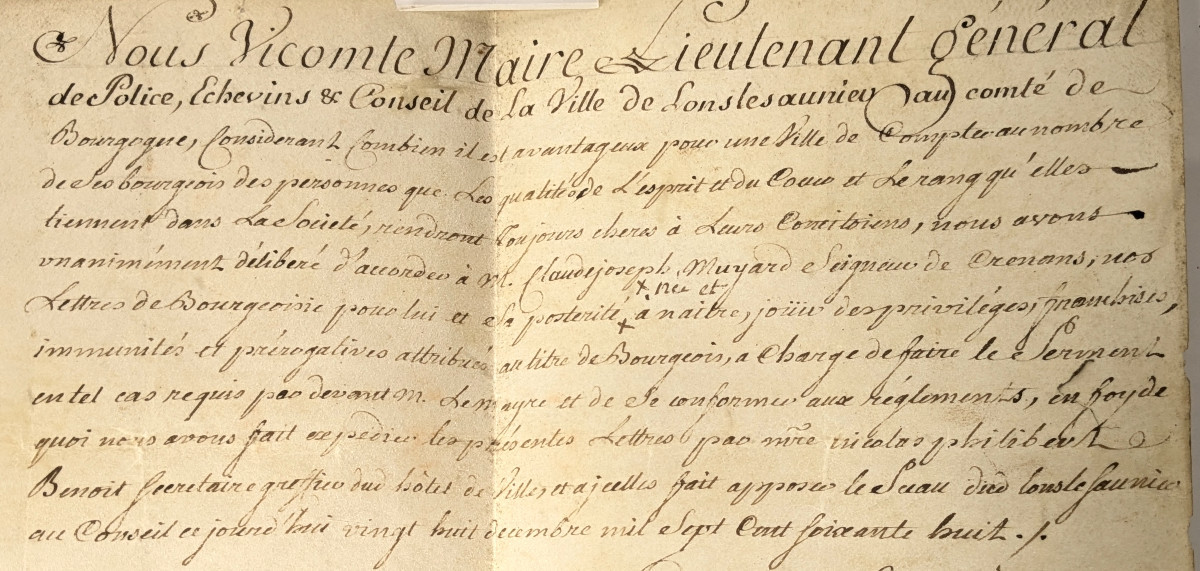 Nous Vicomte Maire Lieutenant général
de Police, Echevins & Conseil de la Ville de Lonslesaunier au comté de
Bourgogne, Considerant Combien il est avantageux pour une Ville de Compter au nombre
de Ses bourgeois des personnes que Les qualités de L'esprit et du Coeur et Le rang qu'elles
tiennent dans La Societé, rendront Toujours cheres à Leurs Concitoiens, nous avons
vnanimément déliberé d'accorder à M. Claudejoseph Muyard Seigneur de Crenans, nos
x née et
Lettres de Bourgeoisie pour lui et Sa posterité x à naitre, jouir des priviléges, franchises,
immunités et prérogatives attribués au titre de Bourgeois, a Charge de faire le Serment
en tel cas requis par devant M. Le Mayre et de Se conformer aux réglements, en foy de
quoi nous avons fait expedier les présentes Lettres par mtre nicolas philibert
Benoit Secretaire greffier dud hôtel de Ville, et ajcelles fait apposer le Sceau dud lonslesaunier
au Conseil cejourd'hui vingt huit decembre mil Sept Cent soixante huit ./.